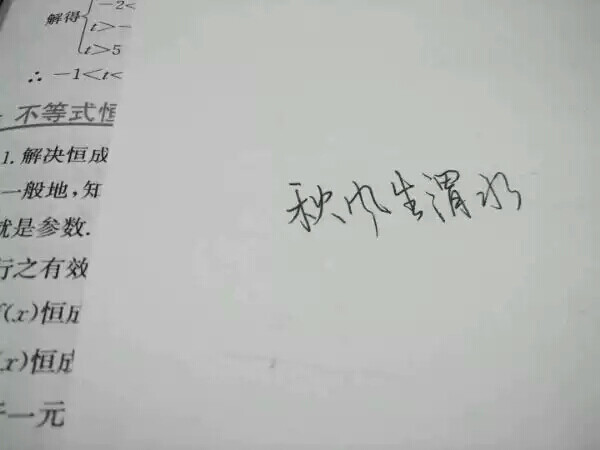 解得
-2<
t>-
t>5
∴ -1<t<
不等式恒
1. 解决恒成
一般地,知
就是参数.
行之有效
(x)恒成
x)恒成
一元
秋风生渭水